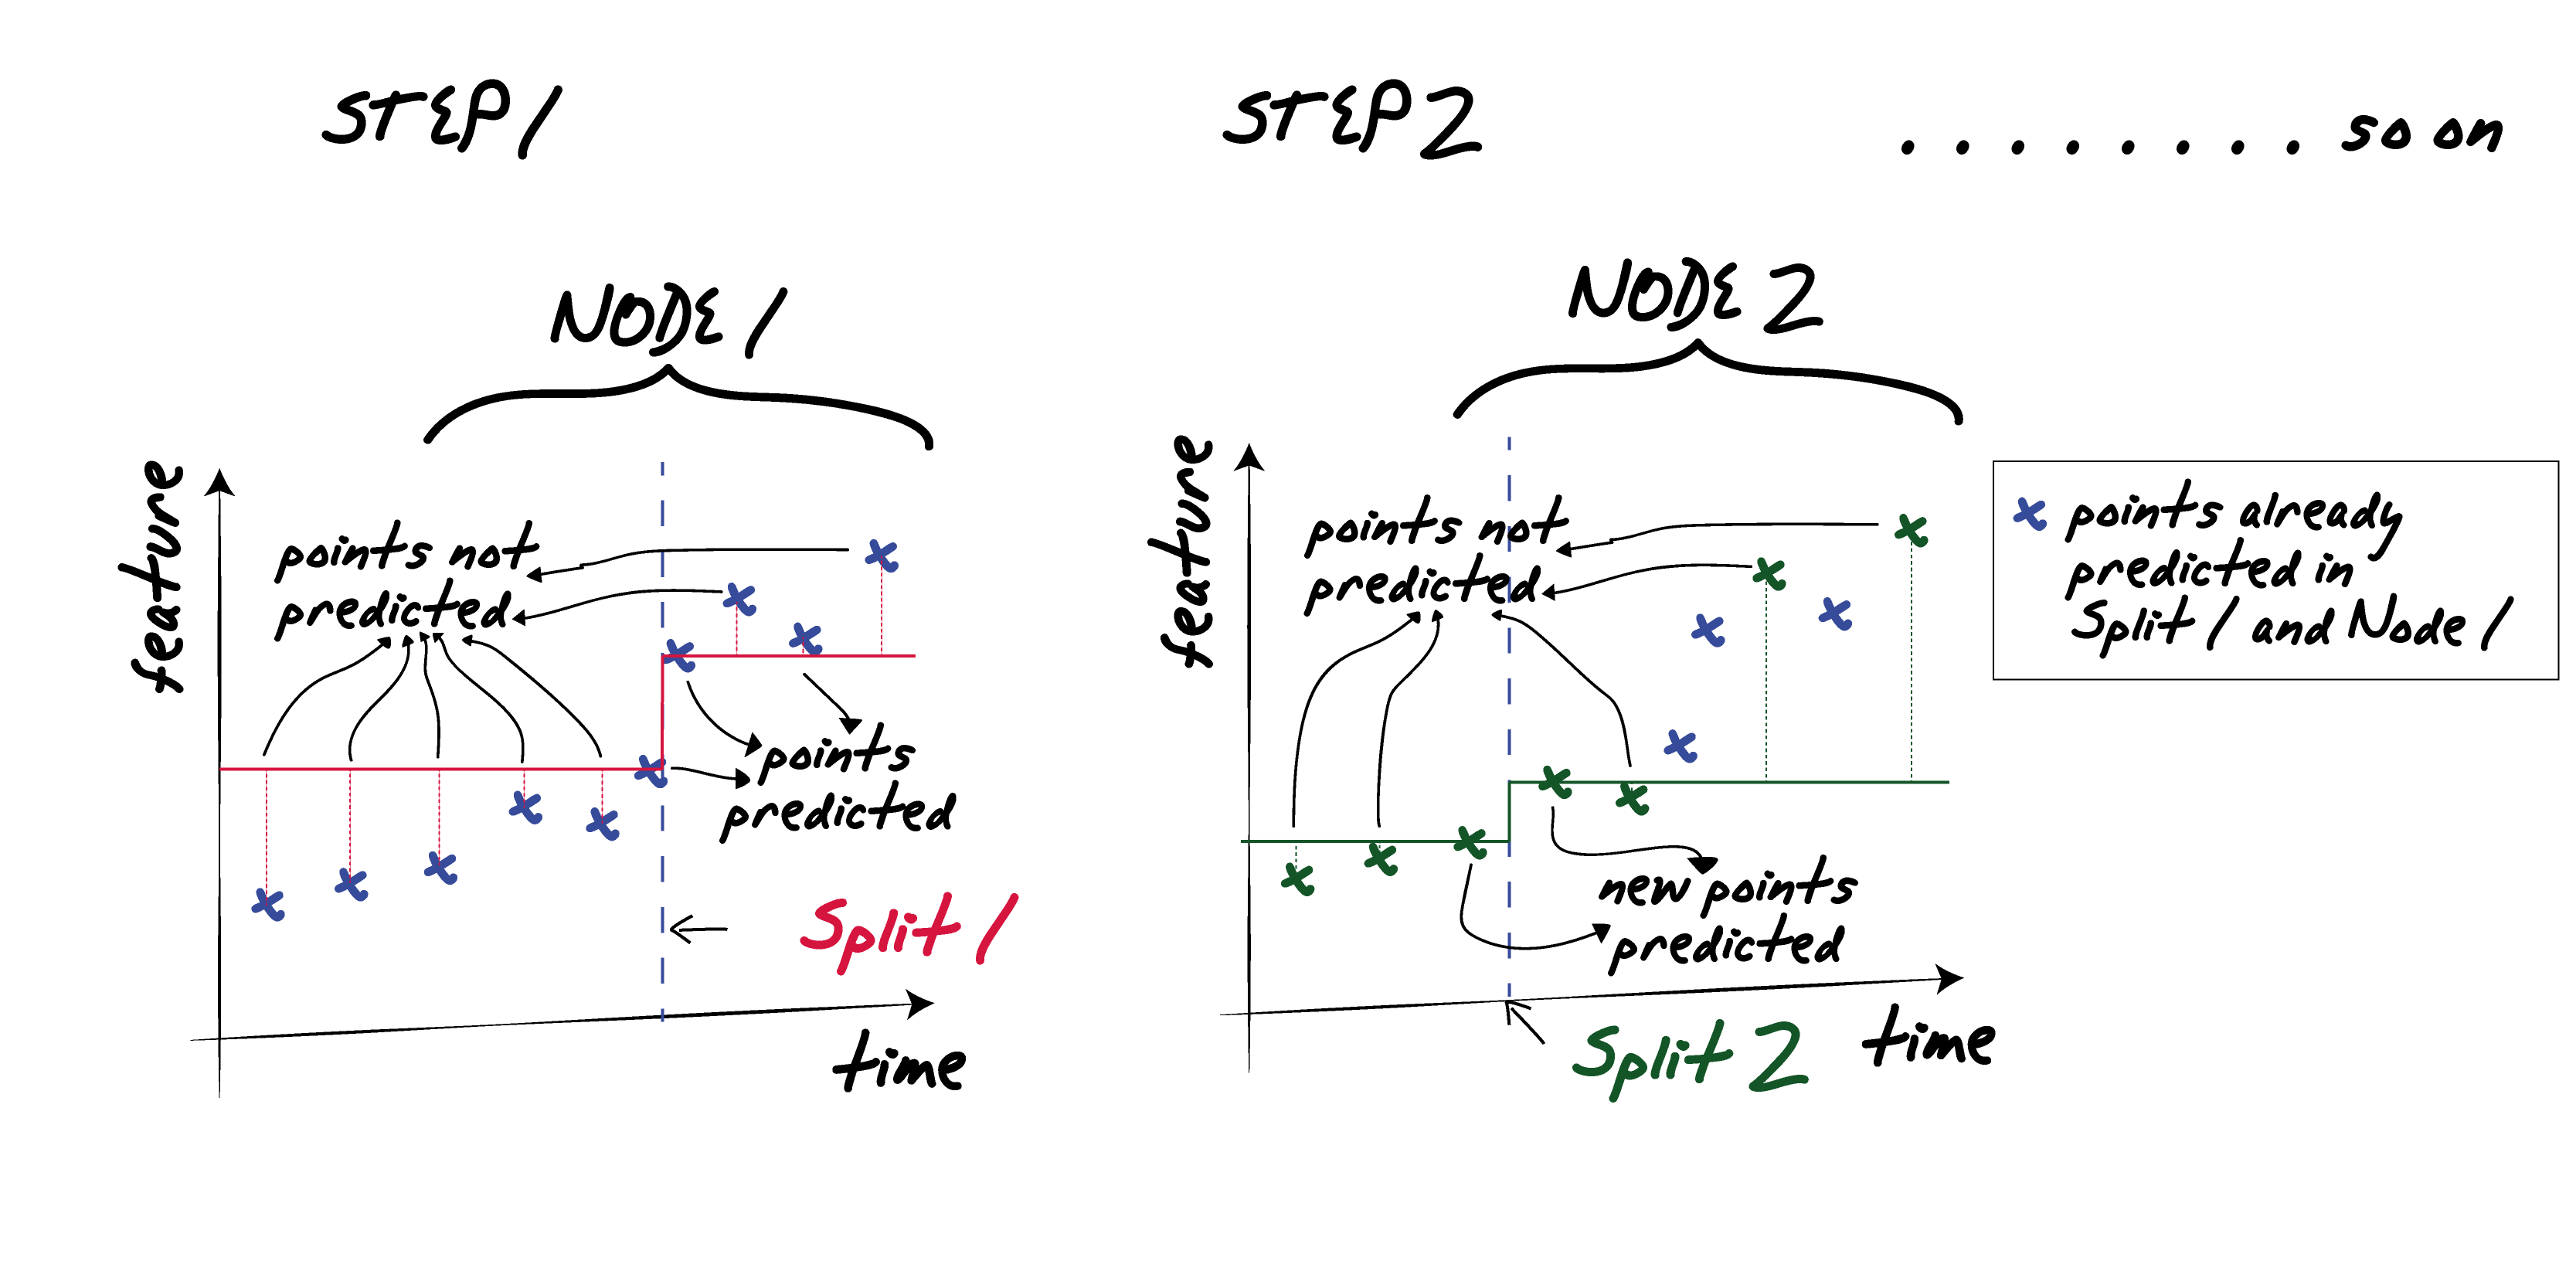 STEP 1
STEP 2
........ so on
NODE 1
feature
points not
predicted
points
predicted
Split 1
time
NODE 2
feature
points not
predicted
new points
predicted
Split 2
time
x points already
predicted in
Split 1 and Node 1